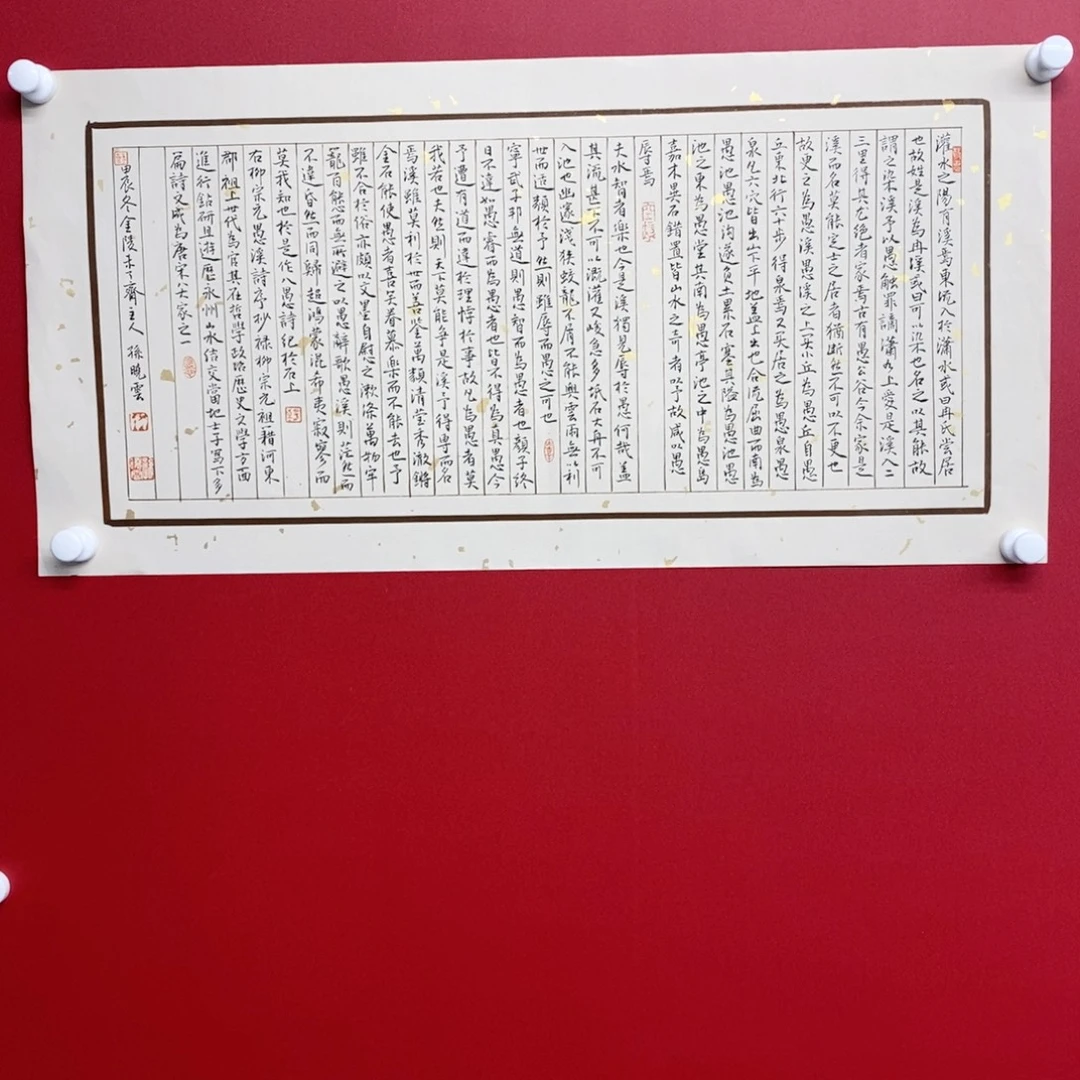 灌水之陽有溪焉東流入於瀟水或曰冉氏嘗居
也故姓是溪為冉溪或曰可以染也名之以其能故
謂之染溪予以愚觸罪謫瀟水上愛是溪入二
三里得其尤絕者家焉古有愚公谷今余家是
溪而名莫能定土之居者猶齗然不可以不更也
故更之為愚溪愚溪之上买小丘為愚丘自愚
丘東北行六十步得泉焉又买居之為愚泉愚
泉凡六穴皆出山下平地蓋上出也合流屈曲而南為
愚池愚池沟遂負土累石塞其隘為愚池愚
池之東為愚堂其南為愚亭池之中為愚島
嘉木異石錯置皆山水之奇者以予故咸以愚
辱焉
夫水智者樂也今是溪獨見辱於愚何哉蓋
其流甚下不可以溉灌又峻急多坻石大舟不可
入池也幽邃浅狹蛟龍不屑不能興雲雨無以利
世而适類於予然則雖辱而愚之可也
寧武子邦無道則愚智而為愚者也顏子終
日不違如愚睿而為愚者也皆不得為真愚今
予遭有道而違於理悖於事故凡為愚者莫
我若也夫然則天下莫能爭是溪予得專而名
焉溪雖莫利於世而善鉴萬類清莹秀澈鏘
金石能使愚者喜笑眷慕樂而不能去也予
雖不合於俗亦頗以文墨自慰之漱滌萬物牢
籠百態而無所避之以愚辭歌愚溪則茫然而
不違昏然而同歸超鴻蒙混希夷寂寥而
莫我知也於是作八愚詩紀於石上
右柳宗元愚溪詩序抄祿柳宗元祖藉河東
郡祖上世代為官其在哲學政治歷史文學方面
進行鉆研且遊歷永州山水结交當地士子寫下多
篇詩文成為唐宋八大家之一
甲辰冬金陵未了齋主人 孫曉雲